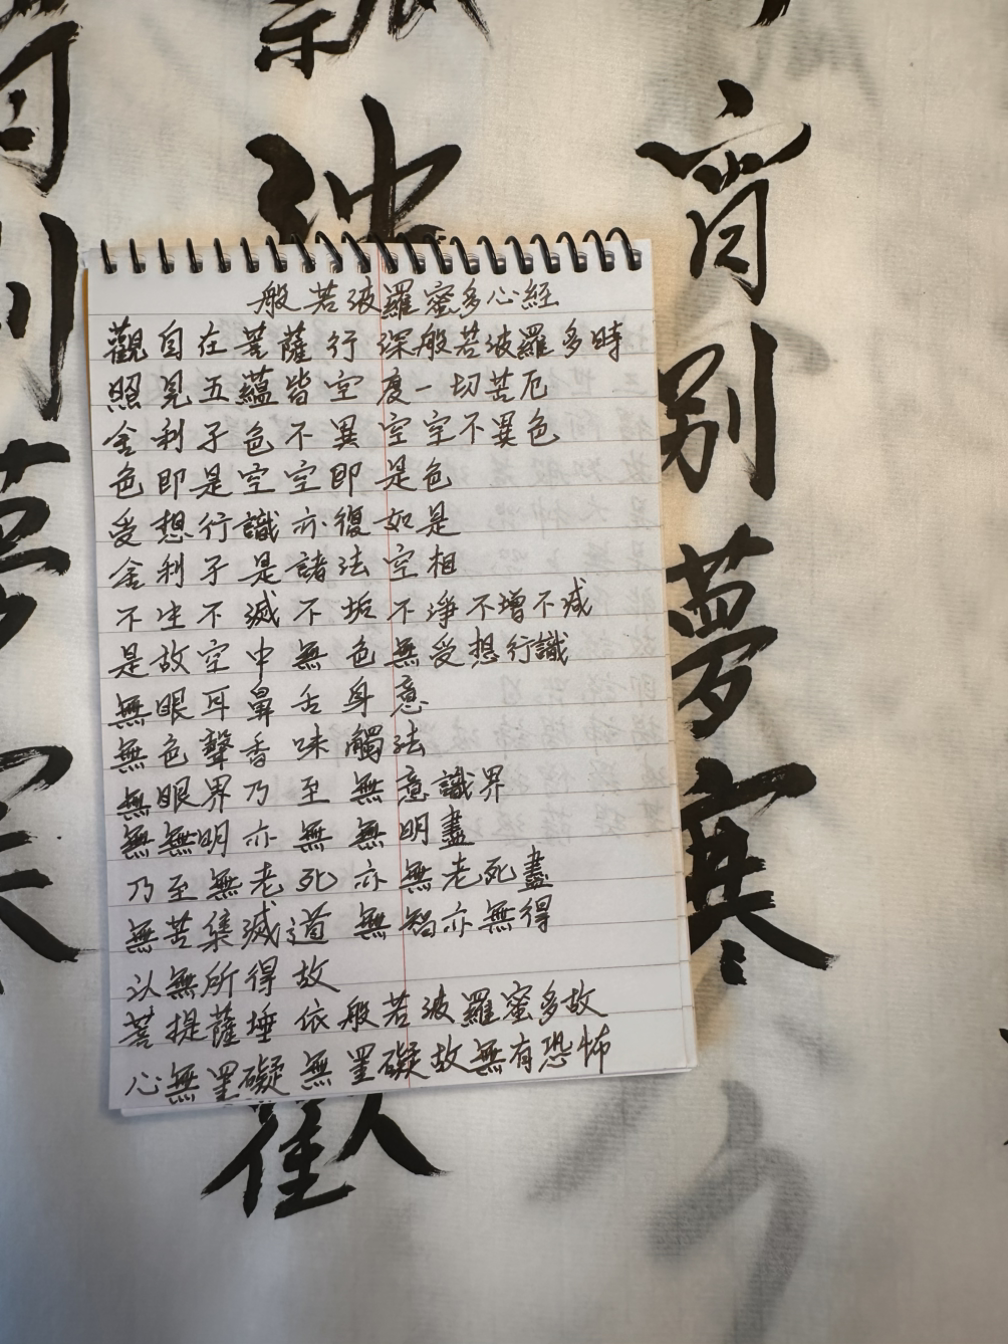 般若波羅蜜多心經
觀自在菩薩行深般若波羅多時
照見五蘊皆空 度一切苦厄
舍利子色不異空空不異色
色即是空空即是色
受想行識亦復如是
舍利子是諸法空相
不生不滅不垢不淨不增不減
是故空中無色無受想行識
無眼耳鼻舌身意
無色聲香味觸法
無眼界乃至無意識界
無無明亦無無明盡
乃至無老死亦無老死盡
無苦集滅道 無智亦無得
以無所得故
菩提薩埵 依般若波羅蜜多故
心無罣礙 無罣礙故無有恐怖
宵别夢寒